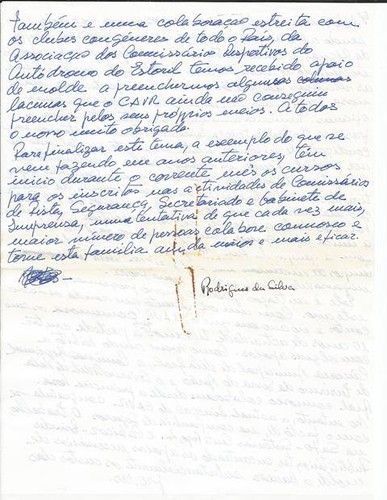 Também e uma colaboração estreita com
os clubes congéneres de todo o País, da
Associação dos Comissários Desportivos do
Autódromo do Estoril temos recebido apoio
de molde a preenchermos algumas
lacunas que o CAVR ainda não conseguiu
preencher pelos seus próprios meios. A todos
o nosso muito obrigado.
Para finalizar este tema, a exemplo do que se
vem fazendo em anos anteriores, têm
início durante o corrente mês os cursos
para os inscritos nas actividades de Comissários
de Pista, Segurança, Secretariado e Gabinete de
Imprensa, uma tentativa de que cada vez mais,
maior número de pessoas colabore connosco e
torne esta família ainda maior e mais eficaz.
Rodrigues da Silva